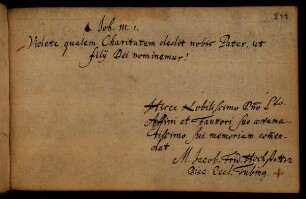 244
1. Joh. III. 1.
Videte, qualem Charitatem dedit nobis Pater, ut
filij Dei nominemur!
Hisce Nobilissimo Dno
Affini et Fautori suo
tissimo sui memoriam com̄en-
dat
M. Jacob. Frid. Hochstetter
Diac. Eccl. Tubing.